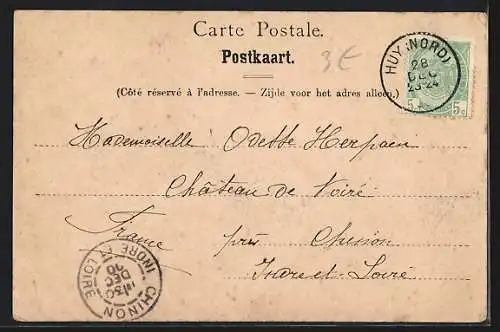 Carte Postale.
Postkaart.
3€
(Côté réservé à l'adresse. — Zijde voor het adres alleen.)
HUY (NORD)
28
DEC
23-24
5 5c
Mademoiselle Odette Herpaen
Château de Voiré
France près Chinon
Indre-et-Loire
CHINON
30
DEC
00
INDRE ET LOIRE